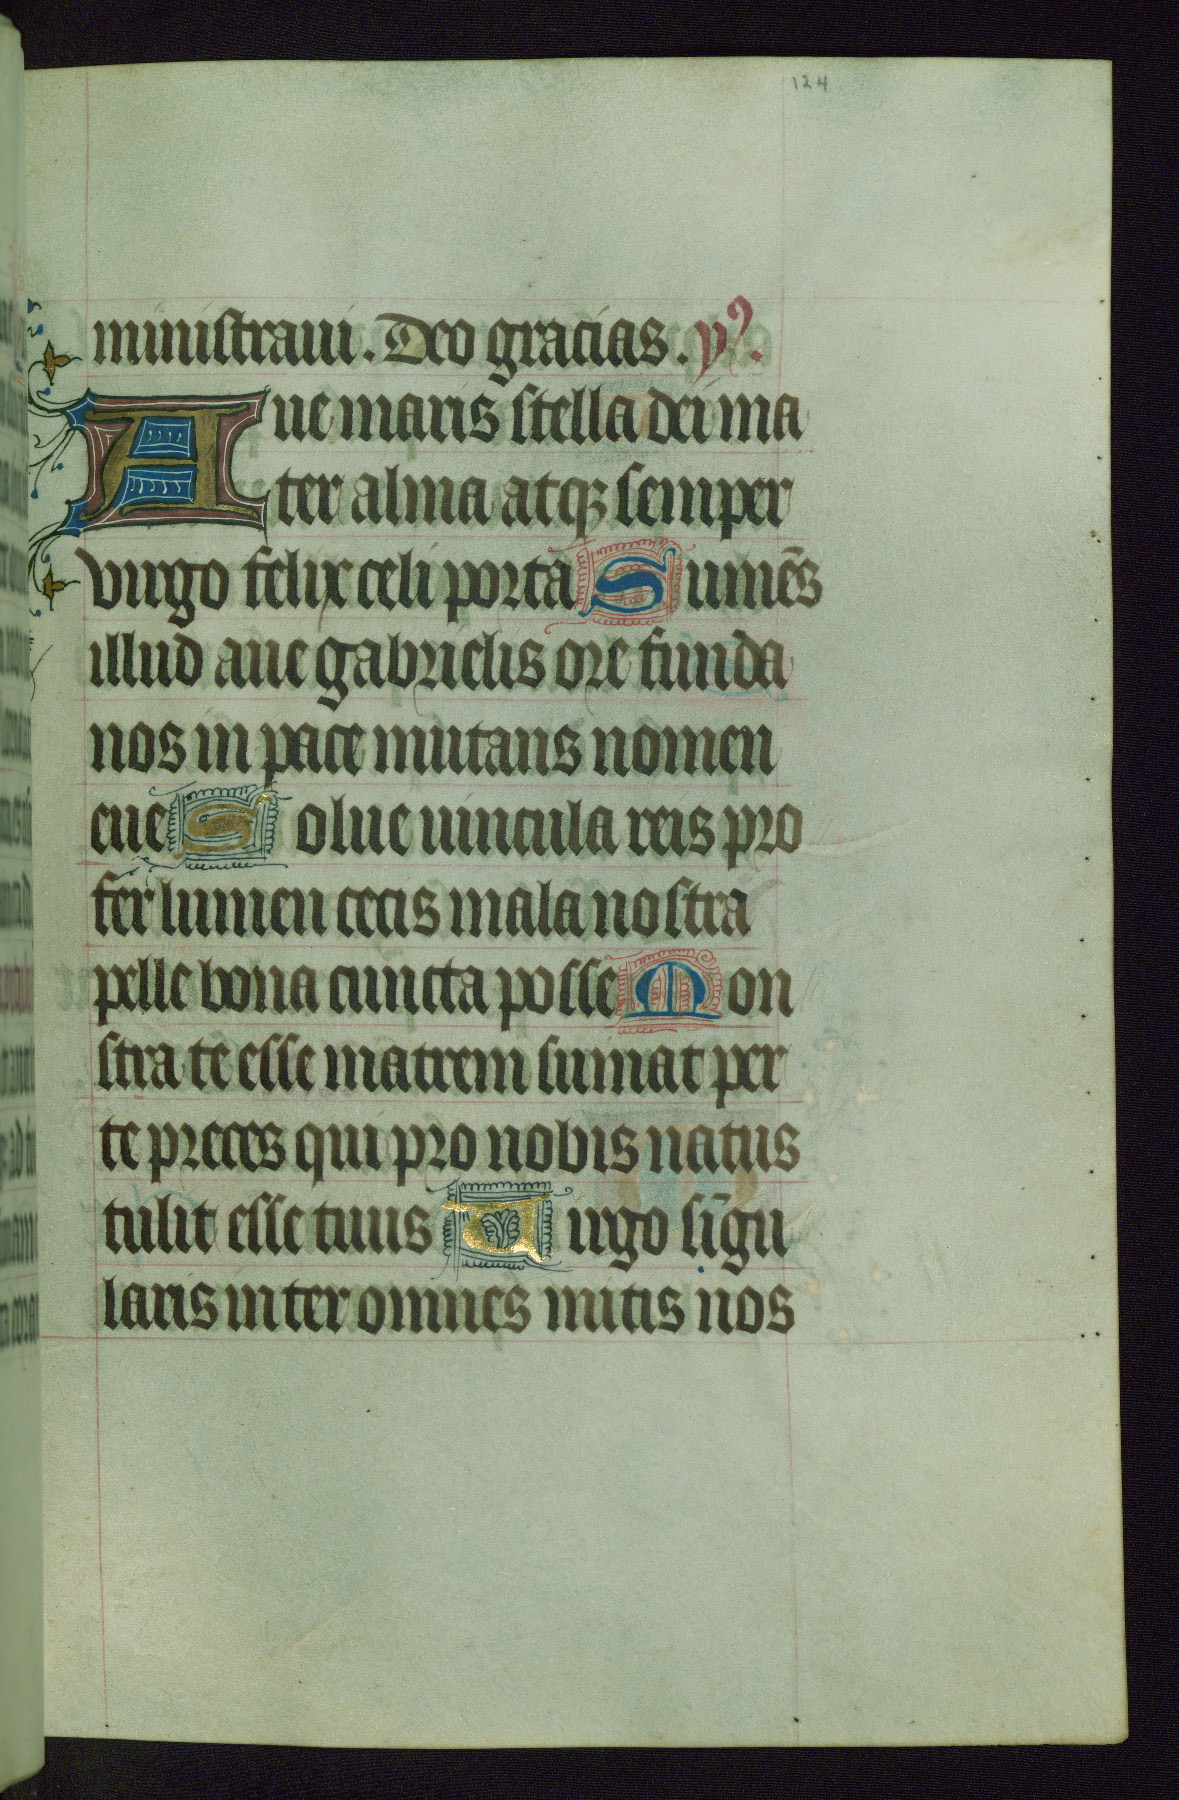 124
ministraui. Deo gracias. ymꝰ.
Aue maris stella dei ma
ter alma atqꝫ semper
virgo felix celi porta Sumēs
illud aue gabrielis ore funda
nos in pace mutans nomen
eue Solue uincula reis pro
fer lumen cecis mala nostra
pelle bona cuncta posse Mon
stra te esse matrem sumat per
te preces qui pro nobis natus
tulit esse tuus Uirgo sīgu
laris inter omnes mitis nos